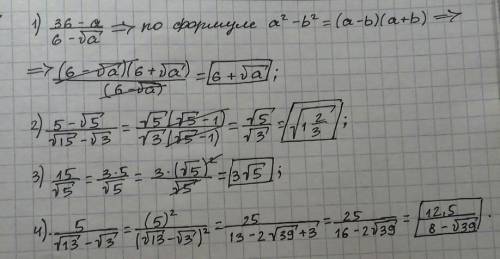 1) (36 - a)/(6 - √a) => по формуле a² - b² = (a - b)(a + b) =>
=> ((6 - √a)(6 + √a))/(6 - √a) = 6 + √a ;
2) (5 - √5)/(√15 - √3) = (√5(√5 - 1))/(√3(√5 - 1)) = √5/√3 = √(1 2/3) ;
3) 15/√5 = (3·5)/√5 = (3·(√5)²)/√5 = 3√5 ;
4) 5/(√13 - √3) = (5)²/(√13 - √3)² = 25/(13 - 2√39 + 3) = 25/(16 - 2√39) = 12,5/(8 - √39) .